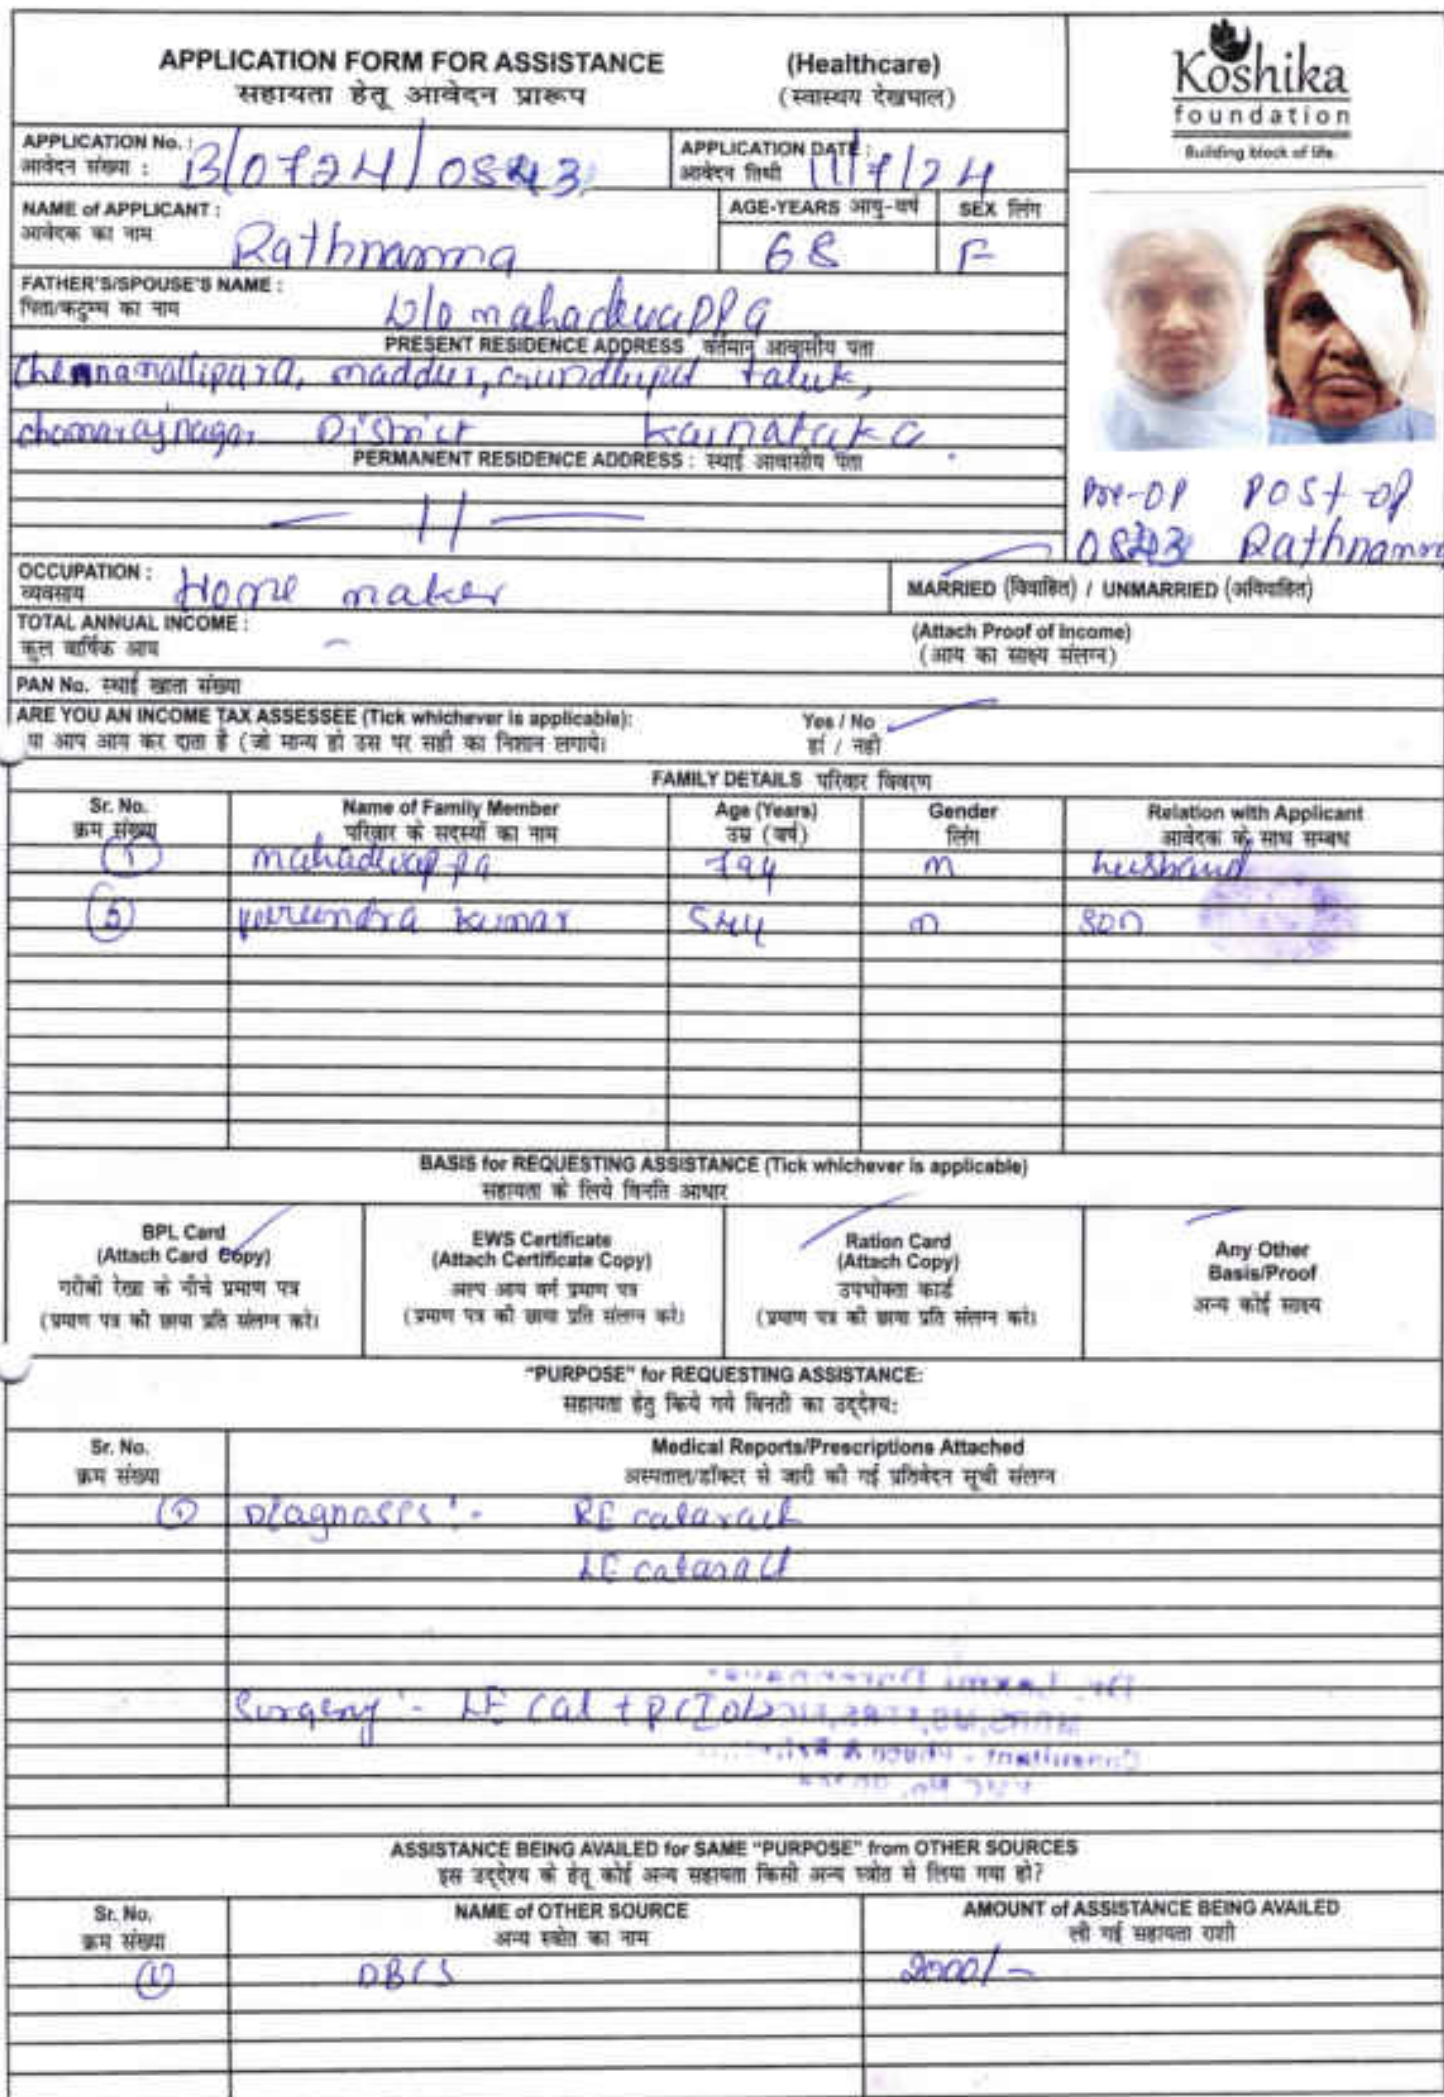 APPLICATION FORM FOR ASSISTANCE (Healthcare)
सहायता हेतू आवेदन प्रारूप (स्वास्थय देखभाल)
Koshika
foundation
Building block of life.
APPLICATION No. : B/0724/0843
आवेदन संख्या :
APPLICATION DATE : 11/7/24
आवेदन तिथी
NAME of APPLICANT : Rathnamma
आवेदक का नाम
AGE-YEARS आयु-वर्ष 68
SEX लिंग F
FATHER'S/SPOUSE'S NAME :
पिता/कटुम्ब का नाम W/o mahadevappa
PRESENT RESIDENCE ADDRESS वर्तमान आवासीय पता
Chennamallipura, maddur, Gundlupet taluk,
chamarajnagar District Karnataka.
PERMANENT RESIDENCE ADDRESS : स्थाई आवासीय पता
— 11 —
Pre-OP POST-OP
0843 Rathnamma
OCCUPATION : Home maker
व्यवसाय
MARRIED (विवाहित) / UNMARRIED (अविवाहित)
TOTAL ANNUAL INCOME : –
कुल वार्षिक आय
(Attach Proof of Income)
(आय का साक्ष्य संलग्न)
PAN No. स्थाई खाता संख्या
ARE YOU AN INCOME TAX ASSESSEE (Tick whichever is applicable): Yes / No
या आप आय कर दाता है (जो मान्य हो उस पर सही का निशान लगाये। हां / नही
FAMILY DETAILS परिवार विवरण
Sr. No. Name of Family Member Age (Years) Gender Relation with Applicant
क्रम संख्या परिवार के सदस्यों का नाम उम्र (वर्ष) लिंग आवेदक के साथ सम्बध
1 mahadevappa m husband
kumar m son
BASIS for REQUESTING ASSISTANCE (Tick whichever is applicable)
सहायता के लिये विनति आधार
BPL Card
(Attach Card Copy)
गरीबी रेखा के नीचे प्रमाण पत्र
(प्रमाण पत्र की छाया प्रति संलग्न करे।
EWS Certificate
(Attach Certificate Copy)
अल्प आय वर्ग प्रमाण पत्र
(प्रमाण पत्र की छाया प्रति संलग्न करे।
Ration Card
(Attach Copy)
उपभोक्ता कार्ड
(प्रमाण पत्र की छाया प्रति संलग्न करे।
Any Other
Basis/Proof
अन्य कोई साक्ष्य
"PURPOSE" for REQUESTING ASSISTANCE:
सहायता हेतु किये गये विनती का उद्देश्य:
Sr. No. Medical Reports/Prescriptions Attached
क्रम संख्या अस्पताल/डॉक्टर से जारी की गई प्रतिवेदन सूची संलग्न
1 Diagnosis :- RE cataract
LE cataract
Surgery :- LE Cat + PCIOL
ASSISTANCE BEING AVAILED for SAME "PURPOSE" from OTHER SOURCES
इस उद्देश्य के हेतू कोई अन्य सहायता किसी अन्य स्त्रोत से लिया गया हो?
Sr. No. NAME of OTHER SOURCE AMOUNT of ASSISTANCE BEING AVAILED
क्रम संख्या अन्य स्त्रोत का नाम ली गई सहायता राशी
1 DBCS 2000/-